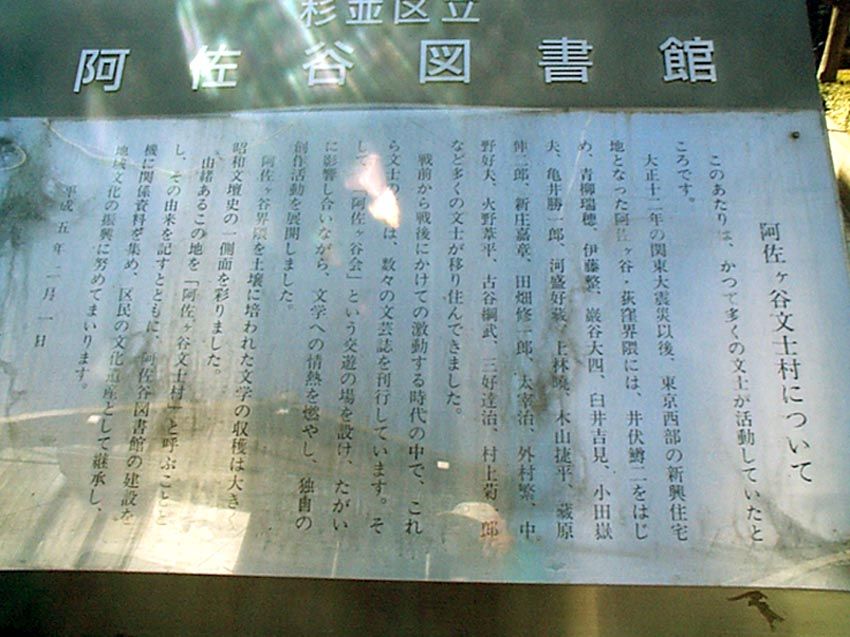 杉並区立
阿佐谷図書館
阿佐ヶ谷文士村について
このあたりは、かつて多くの文士が活動していたと
ころです。
大正十二年の関東大震災以後、東京西部の新興住宅
地となった阿佐ヶ谷・荻窪界隈には、井伏鱒二をはじ
め、青柳瑞穂、伊藤整、巌谷大四、臼井吉見、小田嶽
夫、亀井勝一郎、河盛好蔵、上林暁、木山捷平、蔵原
伸二郎、新庄嘉章、田畑修一郎、太宰治、外村繁、中
野好夫、火野葦平、古谷綱武、三好達治、村上菊一郎
など多くの文士が移り住んできました。
戦前から戦後にかけての激動する時代の中で、これ
ら文士の は、数々の文芸誌を刊行しています。そ
して、「阿佐ヶ谷会」という交遊の場を設け、たがい
に影響し合いながら、文学への情熱を燃やし、独自の
創作活動を展開しました。
阿佐ヶ谷界隈を土壌に培われた文学の収穫は大きく
昭和文壇史の一側面を彩りました。
由緒あるこの地を「阿佐ヶ谷文士村」と呼ぶことと
し、その由来を記すとともに、阿佐谷図書館の建設を
機に関係資料を集め、区民の文化遺産として継承し、
地域文化の振興に努めてまいります。
平成五年二月一日